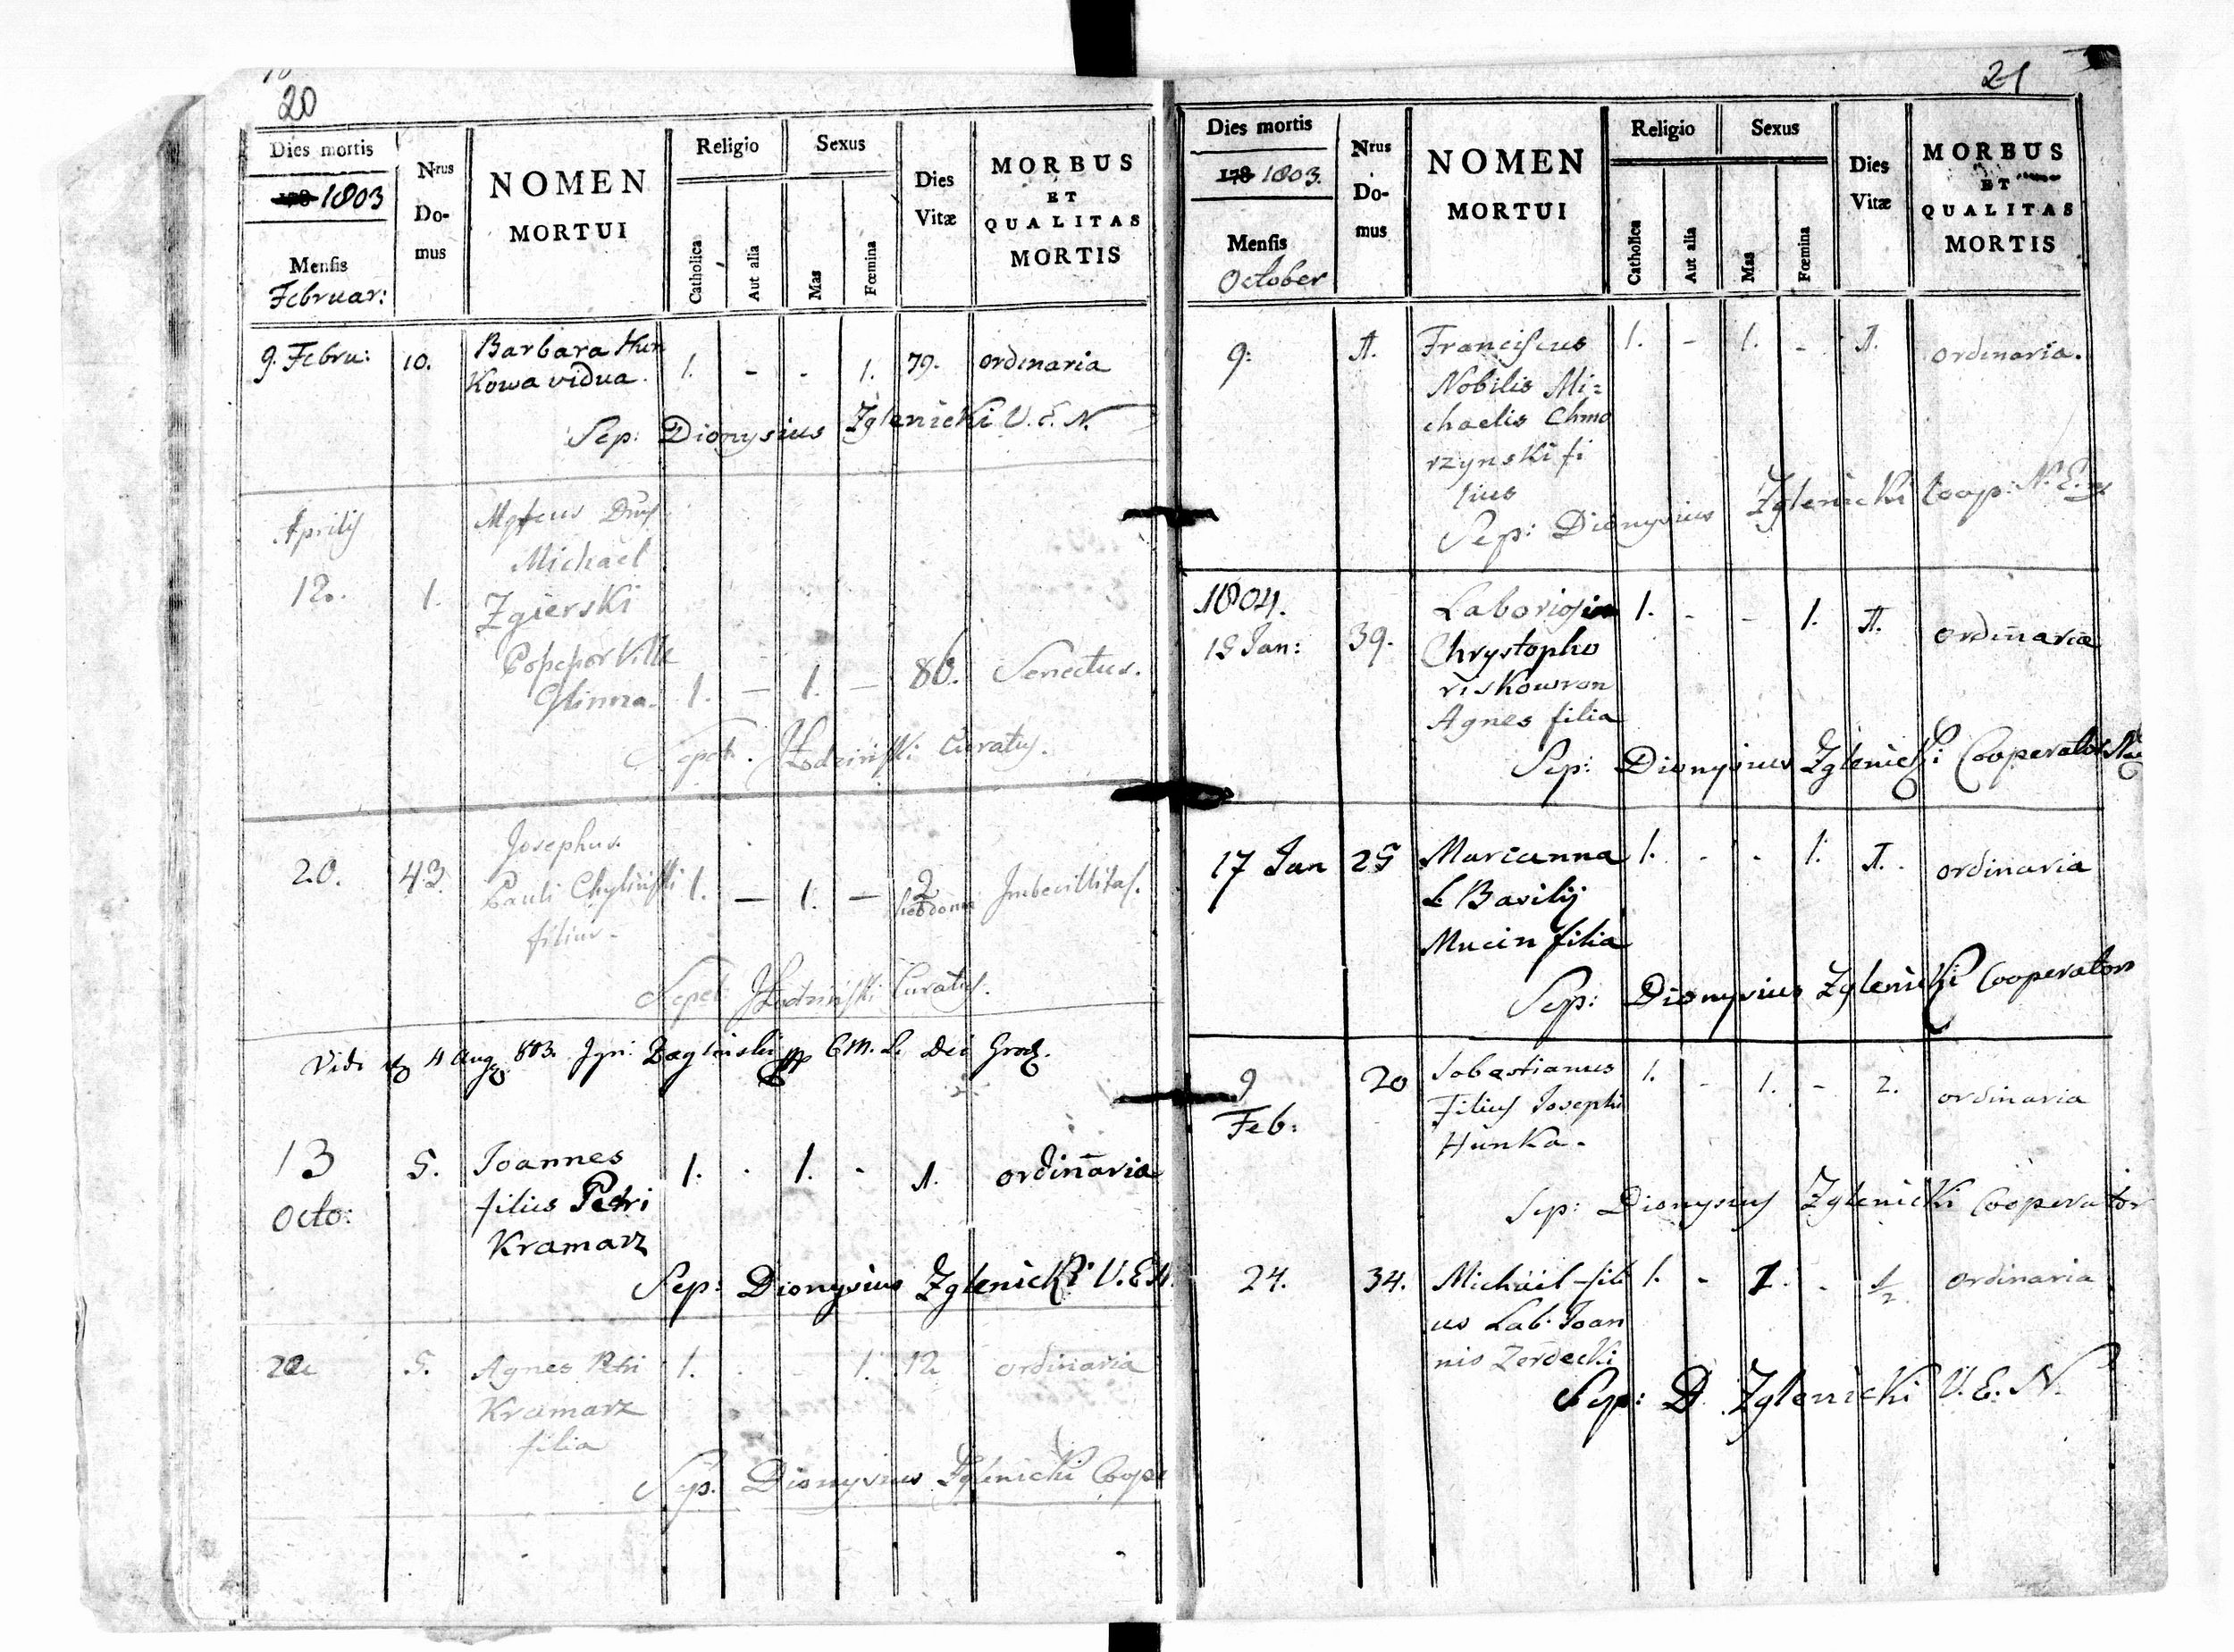 20
Dies mortis
178 1803
Mensis
Februar:
Nrus
Do-
mus
NOMEN
MORTUI
Religio
Catholica
Aut alia
Sexus
Mas
Fœmina
Dies
Vitæ
MORBUS
ET
QUALITAS
MORTIS
9. Febru: 10. Barbara Hun 1. - - 1. 79. ordinaria
Kowa vidua.
Sep: Dionysius Zglenicki V. E. N.
Aprilis
Michael
12. 1. Zgierski
1. — 1. — 86. Senectus.
Glinna.
Sepel. Curatus.
Josephus
20. 43. Pauli Chylinski 1. — 1. — 2 Imbecillitas.
hebdoma
filius.
Sepel. Curatus.
Vidi 4 Aug 803. Dei
13 5. Joannes 1. . 1. - 1. ordinaria
Octo: filius Petri
Kramarz
Sep: Dionysius Zglenicki V. E. N.
22 5. Agnes Petri 1. . - 1. 12 ordinaria
Kramarz
filia
Sep. Dionysius Zglenicki Coope
21
Dies mortis
178 1803.
Mensis
October
Nrus
Do-
mus
NOMEN
MORTUI
Religio
Catholica
Aut alia
Sexus
Mas
Fœmina
Dies
Vitæ
MORBUS
ET
QUALITAS
MORTIS
9: 1. Franciscus 1. - 1. - 1. ordinaria.
Nobilis Mi=
chaelis Chmo
rzynski fi
lius
Sep: Dionysius Zglenicki Coop: N. E.
1804. Laboriosi 1. - - 1. 1. ordinaria
15 Jan: 39. Chrystopho
ri Skowron
Agnes filia
Sep: Dionysius Zglenicki Cooperator
17 Jan 25 Marianna 1. - - 1. 1. ordinaria
L Basilij
Mucin filia
Sep: Dionysius Zglenicki Cooperator
9 20 Sobastianus 1. - 1. - 2. ordinaria
Feb: Filius Josephi
Hunka.
Sep: Dionysius Zglenicki Cooperator
24. 34. Michael fili 1. - 1. - 1/2 ordinaria
us Lab. Joan
nis Zerdecki
Sep: D Zglenicki V. E. N.